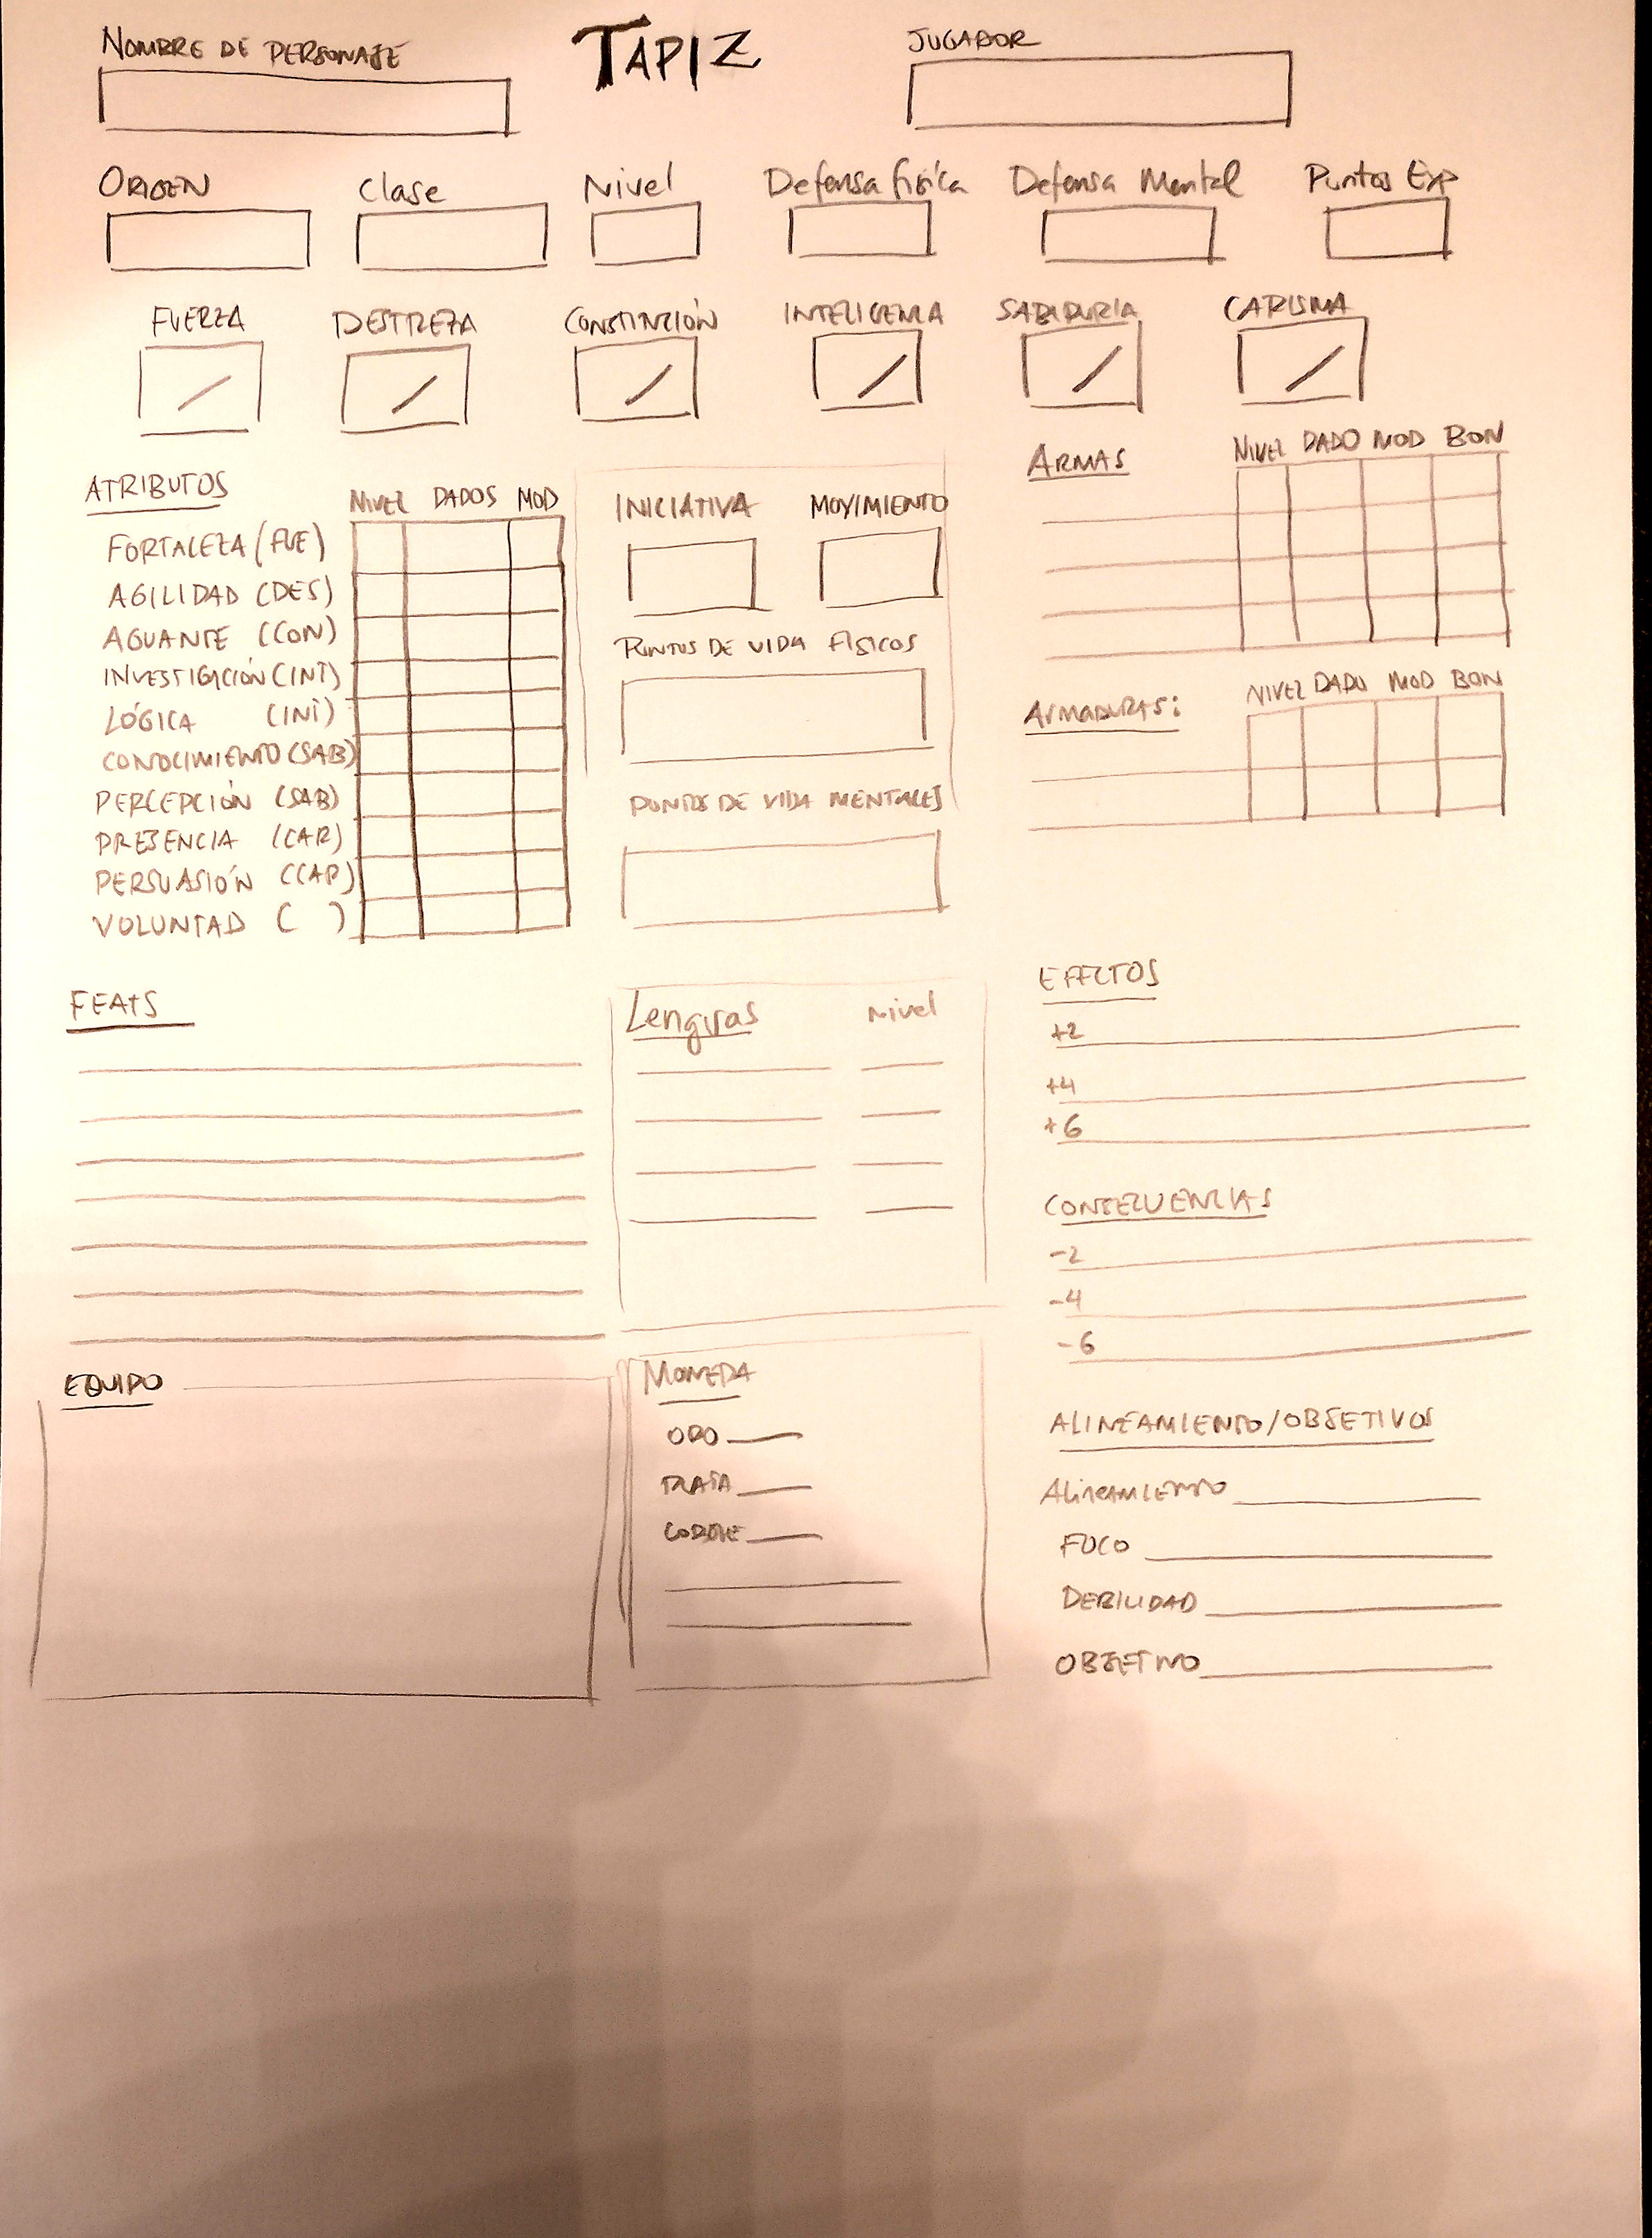 NOMBRE DE PERSONAJE TAPIZ JUGADOR
ORIGEN Clase Nivel Defensa física Defensa Mental Puntos Exp
FUERZA DESTREZA CONSTITUCIÓN INTELIGENCIA SABIDURÍA CARISMA
ATRIBUTOS NIVEL DADOS MOD
FORTALEZA (FUE)
AGILIDAD (DES)
AGUANTE (CON)
INVESTIGACIÓN (INT)
LÓGICA (INT)
CONOCIMIENTO (SAB)
PERCEPCIÓN (SAB)
PRESENCIA (CAR)
PERSUASIÓN (CAR)
VOLUNTAD ( )
INICIATIVA MOVIMIENTO
PUNTOS DE VIDA FÍSICOS
PUNTOS DE VIDA MENTALES
ARMAS NIVEL DADO MOD BON
ARMADURAS: NIVEL DADO MOD BON
FEATS
Lenguas Nivel
EFECTOS
+2
+4
+6
CONSECUENCIAS
-2
-4
-6
EQUIPO
MONEDA
ORO
PLATA
COBRE
ALINEAMIENTO/OBJETIVOS
ALINEAMIENTO
FOCO
DEBILIDAD
OBJETIVO